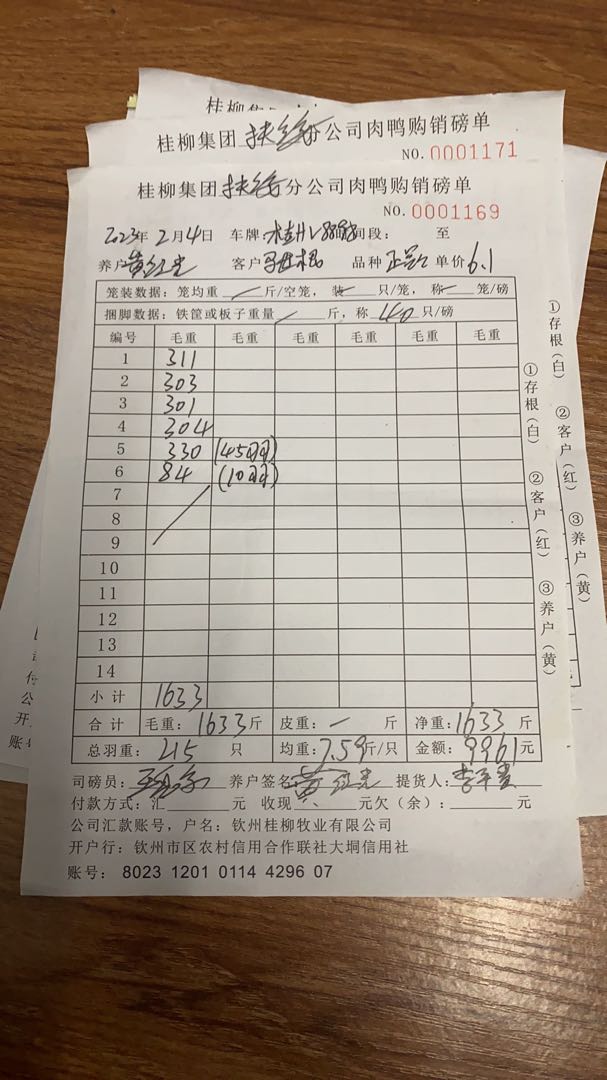 桂柳集
桂柳集团扶绥分公司肉鸭购销磅单
NO.0001171
桂柳集团扶绥分公司肉鸭购销磅单
NO.0001169
2023年2月4日 车牌: 间段: 至
养户黄红光 客户 品种 单价6.1
笼装数据:笼均重 / 斤/空笼,装 / 只/笼,称 / 笼/磅
捆脚数据:铁筐或板子重量 / 斤,称 40 只/磅
编号 毛重 毛重 毛重 毛重 毛重 毛重
1 311
2 303
3 301
4 304
5 330 (45只)
6 84 (10只)
7
8
9
10
11
12
13
14
小计 1633
合计 毛重:1633斤 皮重:一 斤 净重:1633斤
总羽重:215 只 均重:7.59斤/只 金额:9961元
司磅员: 养户签名:黄红光 提货人:
付款方式:汇 元 收现 元欠(余): 元
公司汇款账号,户名:钦州桂柳牧业有限公司
开户行:钦州市区农村信用合作联社大垌信用社
账号: 8023 1201 0114 4296 07
①存根(白) ②客户(红) ③养户(黄)
①存根(白) ②客户(红) ③养户(黄)